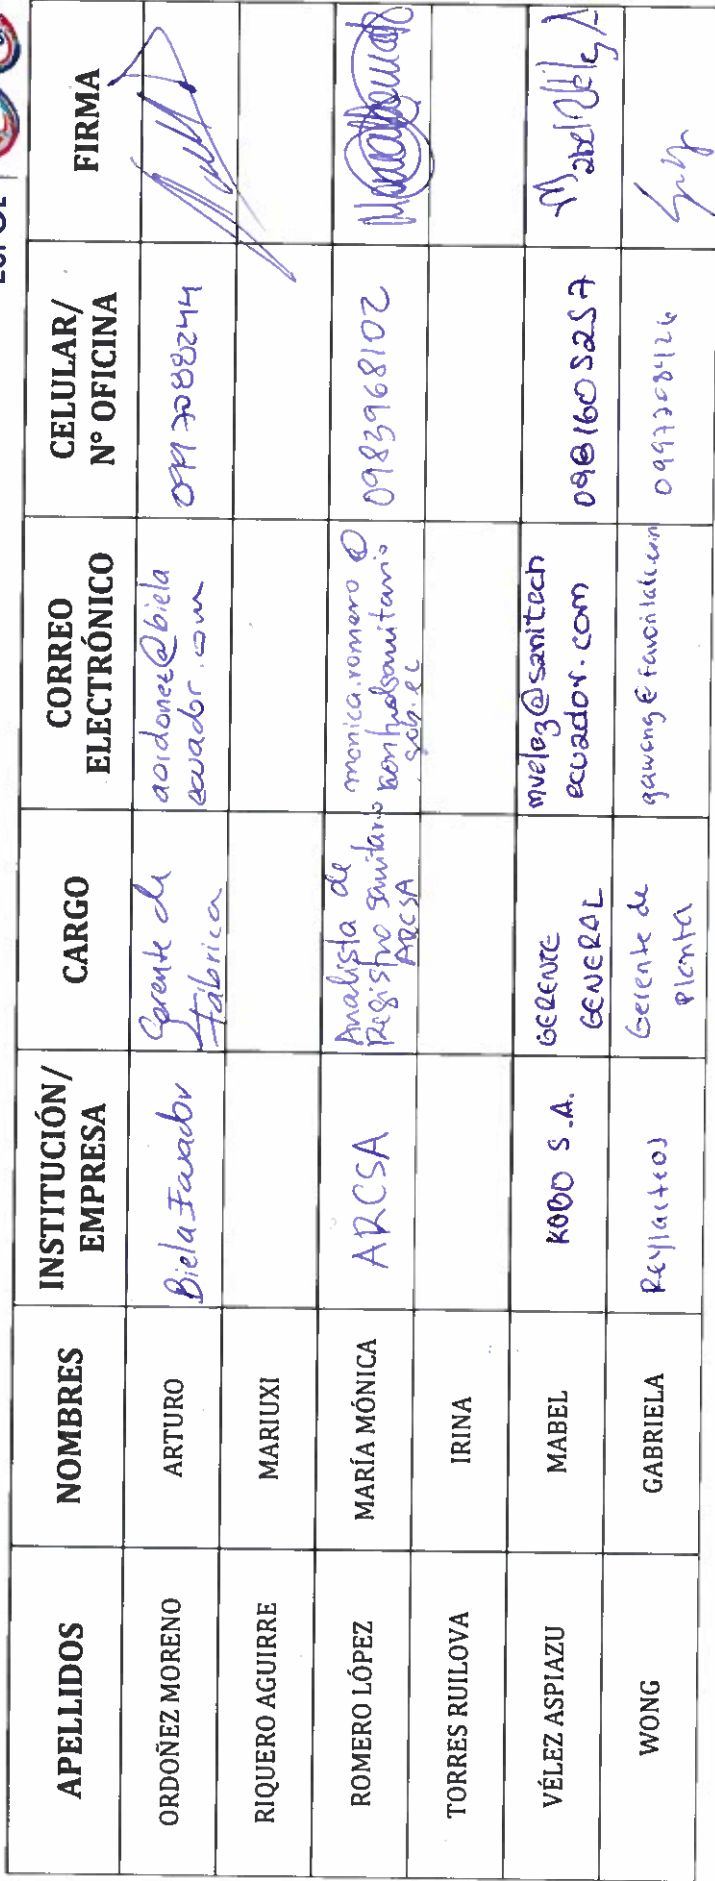 ESPOL
APELLIDOS NOMBRES INSTITUCIÓN/ EMPRESA CARGO CORREO ELECTRÓNICO CELULAR/ N° OFICINA FIRMA
ORDOÑEZ MORENO ARTURO Biela Ecuador Gerente de fábrica aordonez@biela ecuador.com
RIQUERO AGUIRRE MARIUXI
ROMERO LÓPEZ MARÍA MÓNICA ARCSA Analista de Registro Sanitario ARCSA monica.romero@ controlsanitario gob.ec 0983968102
TORRES RUILOVA IRINA
VÉLEZ ASPIAZU MABEL KOBO S.A. GERENTE GENERAL mvelez@sanitech ecuador.com
WONG GABRIELA Reylacteos Gerente de Planta 0997208426